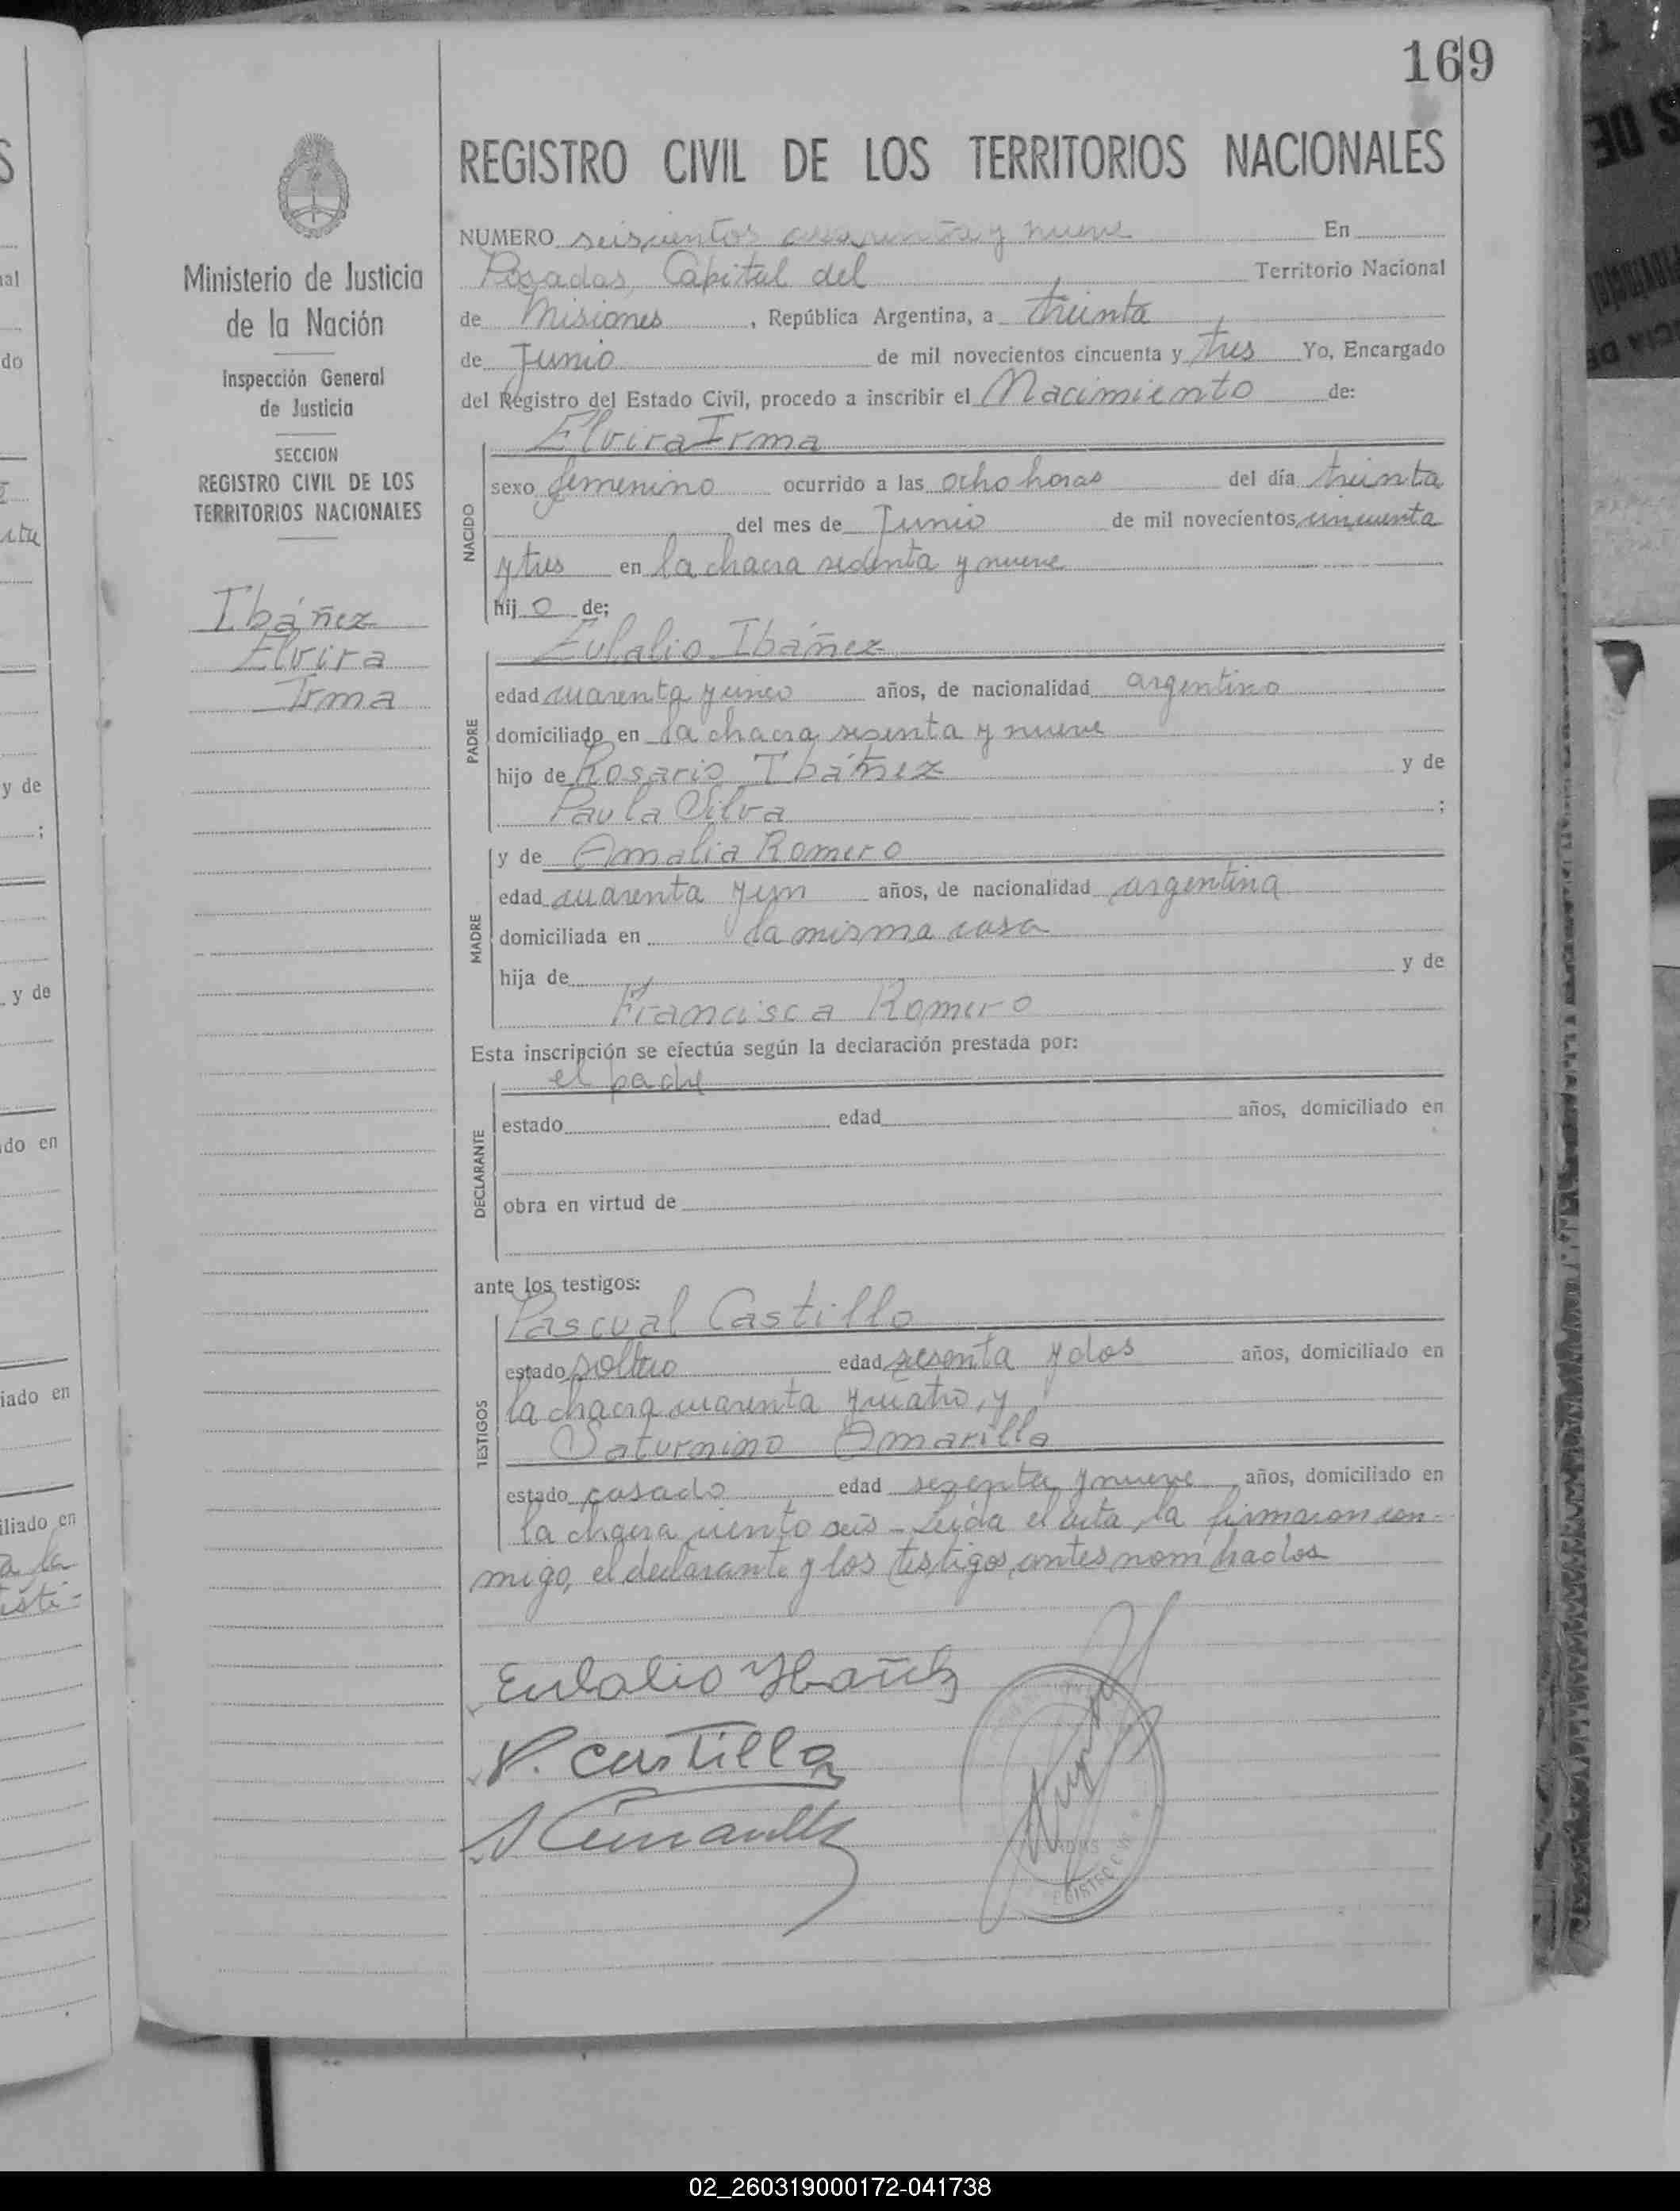 169
REGISTRO CIVIL DE LOS TERRITORIOS NACIONALES
Ministerio de Justicia
de la Nación
Inspección General
de Justicia
SECCION
REGISTRO CIVIL DE LOS
TERRITORIOS NACIONALES
Ibáñez
Elvira
Irma
NUMERO seiscientos cuarenta y nueve En
Posadas, Capital del Territorio Nacional
de Misiones, República Argentina, a treinta
de Junio de mil novecientos cincuenta y tres Yo, Encargado
del Registro del Estado Civil, procedo a inscribir el Nacimiento de:
NACIDO
Elvira Irma
sexo femenino ocurrido a las ocho horas del día treinta
del mes de Junio de mil novecientos cincuenta
y tres en la chacra sesenta y nueve
hijo de;
PADRE
Eulalio Ibáñez
edad cuarenta y cinco años, de nacionalidad argentino
domiciliado en la chacra sesenta y nueve
hijo de Rosario Ibáñez y de
Paula Silva ;
MADRE
y de Amalia Romero
edad cuarenta y un años, de nacionalidad argentina
domiciliada en la misma casa
hija de y de
Francisca Romero
Esta inscripción se efectúa según la declaración prestada por:
DECLARANTE
el padre
estado edad años, domiciliado en
obra en virtud de
ante los testigos:
TESTIGOS
Pascual Castillo
estado soltero edad sesenta y dos años, domiciliado en
la chacra cuarenta y cuatro, y
Saturnino Amarilla
estado casado edad sesenta y nueve años, domiciliado en
la chacra ciento seis - Leida el acta, la firmaron con-
migo, el declarante y los testigos antes nombrados
Eulalio Ybañez
P. Castillo
S Amarilla
02_260319000172-041738